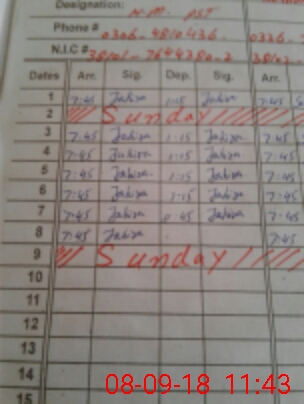 Designation: H.M. PST
Phone # 0306-4810436. 0336-7
N.I.C #
Dates Arr. Sig. Dep. Sig. Arr.
1 7:45 Jabira 1:15 Jabira 7:45
2 Sunday
3 7:45 Jabira 1:15 Jabira 7:45
4 7:45 Jabira 1:15 Jabira 7:45
5 7:45 Jabira 1:15 Jabira 7:45
6 7:45 Jabira 1:15 Jabira 7:45
7 7:45 Jabira Jabira 7:45
8 7:45 Jabira 7:45
9 Sunday
10
11
12
13
14
15
08-09-18 11:43